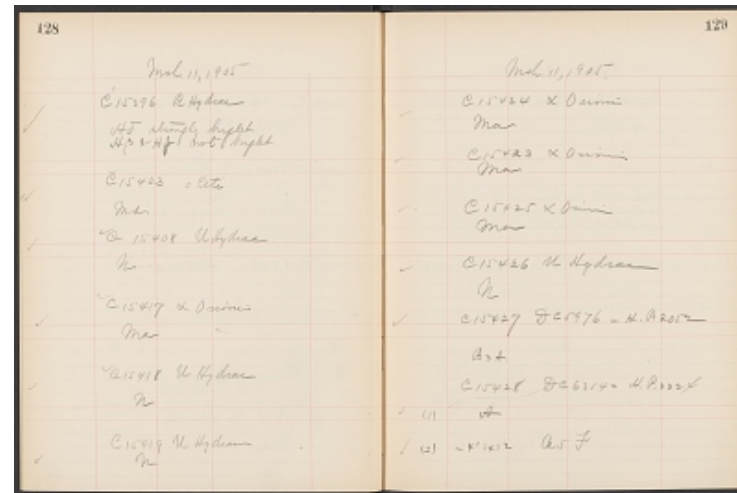 128
Mch. 11, 1905
C 15396 R Hydrae
Hδ strongly bright
Hβ & Hγ not bright
C 15403 o Ceti
Md.
C 15408 U Hydrae
N
C 15417 α Orionis
Ma
C 15418 U Hydrae
N
C 15419 U Hydrae
N
129
Mch. 11, 1905.
C 15424 α Orionis
Ma
C 15423 α Orionis
Ma
C 15425 α Orionis
Ma
C 15426 U Hydrae
N
C 15427 DC 5976 = H.P. 2052
C 15428 DC 6354 = H.P.
(1) A
(2) F